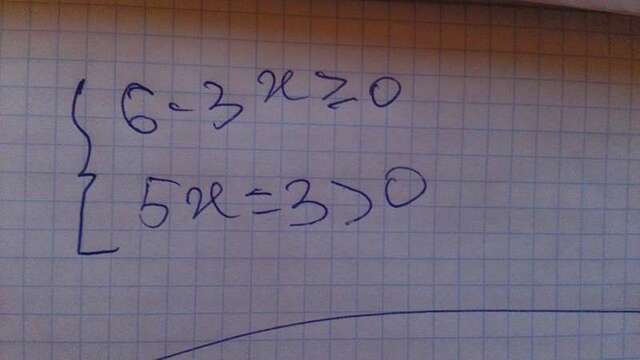 6-3x≥0
5x=3>0